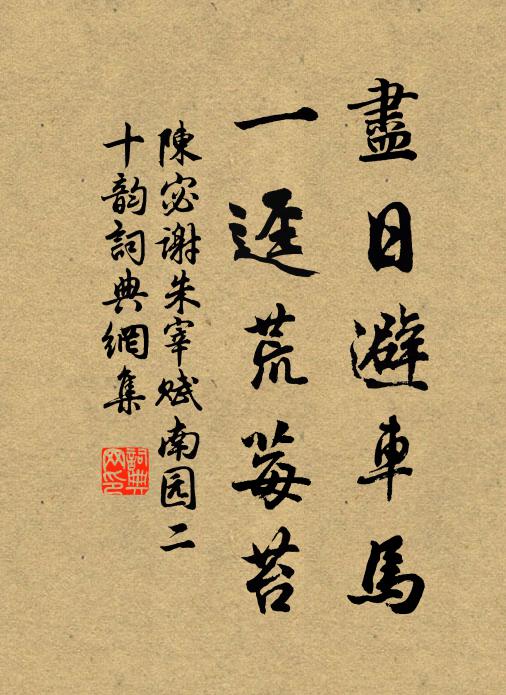 盡日避車馬
一逕荒莓苔
陳宓謝朱宰賦南园二
十韵詞典網集
詞典網印